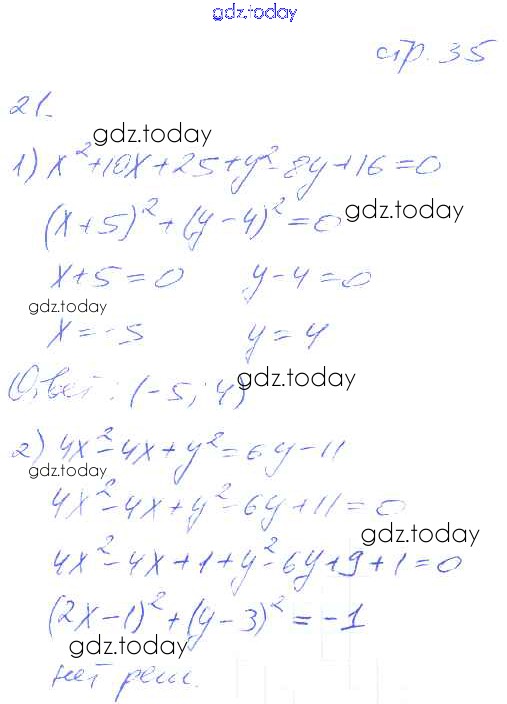 gdz.today
стр. 35
21.
gdz.today
1) x²+10x+25+y²-8y+16=0
(x+5)²+(y-4)²=0 gdz.today
x+5=0 y-4=0
gdz.today
x=-5 y=4
Ответ: (-5; 4) gdz.today
2) 4x²-4x+y²=6y-11
gdz.today
4x²-4x+y²-6y+11=0
gdz.today
4x²-4x+1+y²-6y+9+1=0
(2x-1)²+(y-3)²=-1
gdz.today
нет реш.